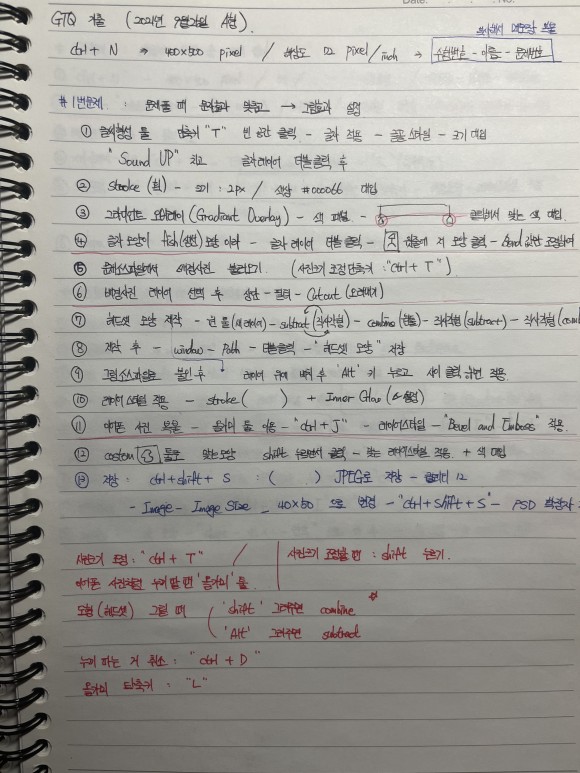 GTQ 기출 (2021년 9월 A형).
ctrl + N → 400×500 pixel / 해상도 72 pixel/inch → 수험번호 - 이름 - 문제번호
#1번문제 : 문제풀 때 문자효과 맞추고 → 그림효과 설정
① 글씨형성 툴 단축키 "T" 빈 공간 클릭 - 글자 적용 - 궁서스타일 - 크기 대입
"Sound UP" 치고 글자레이어 더블클릭 후
② stroke (획) - 크기 : 2px / 색상 #000066 대입
③ 그라디언트 오버레이 (Gradient Overlay) - 색 패널 - 클릭해서 맞는 색 대입.
④ 글자 모양이 fish(생선) 모양 이라 - 글자 레이어 더블클릭 - 뒤틀에 저 모양 클릭 - Bend 값만 조정하여
⑤ 문제소스파일에서 배경사진 불러오기. (사진크기 조정단축키 : "ctrl + T")
⑥ 배경사진 레이어 선택 후 상단 - 필터 - Cutout (오려내기)
⑦ 헤드셋 모양 제작 - 펜 툴 (새 레이어) - subtract (직사각형) - combine (펜툴) - 직사각형 (subtract) - 직사각형 (com
⑧ 제작 후 - window - Path - 더블클릭 - "헤드셋 모양" 저장
⑨ 그림소스파일로 붙인 후 레이어 위에 배치 후 'Alt' 키 누르고 사이 클릭 적용.
⑩ 레이어스타일 적용 - stroke ( ) + Inner Glow
⑪ 사진 복문 - 올가미 툴 이용 - "ctrl + J" - 레이어스타일 - "Bevel and Emboss" 적용.
⑫ custom 툴로 맞는모양 shift 누르면서 클릭 - 맞는 레이어스타일 적용 + 색 대입
⑬ 저장 : ctrl + shift + S : ( ) JPEG로 저장 - 퀄리티 12
- Image - Image Size - 40×50 으로 변경 - "ctrl + Shift + S" - PSD 확장자
사진크기 조정 : "ctrl + T" / 사진크기 조정할 땐 : shift 누르기.
사진처럼 누끼 딸 땐 '올가미' 툴
모형 (헤드셋) 그릴 때 'shift' 그려주면 combine
'Alt' 그려주면 subtract
누끼 따는 거 취소 : "ctrl + D"
올가미 단축키 : "L"